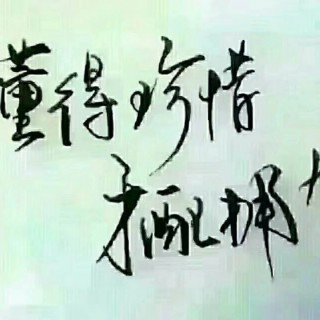 懂得珍惜
才配拥